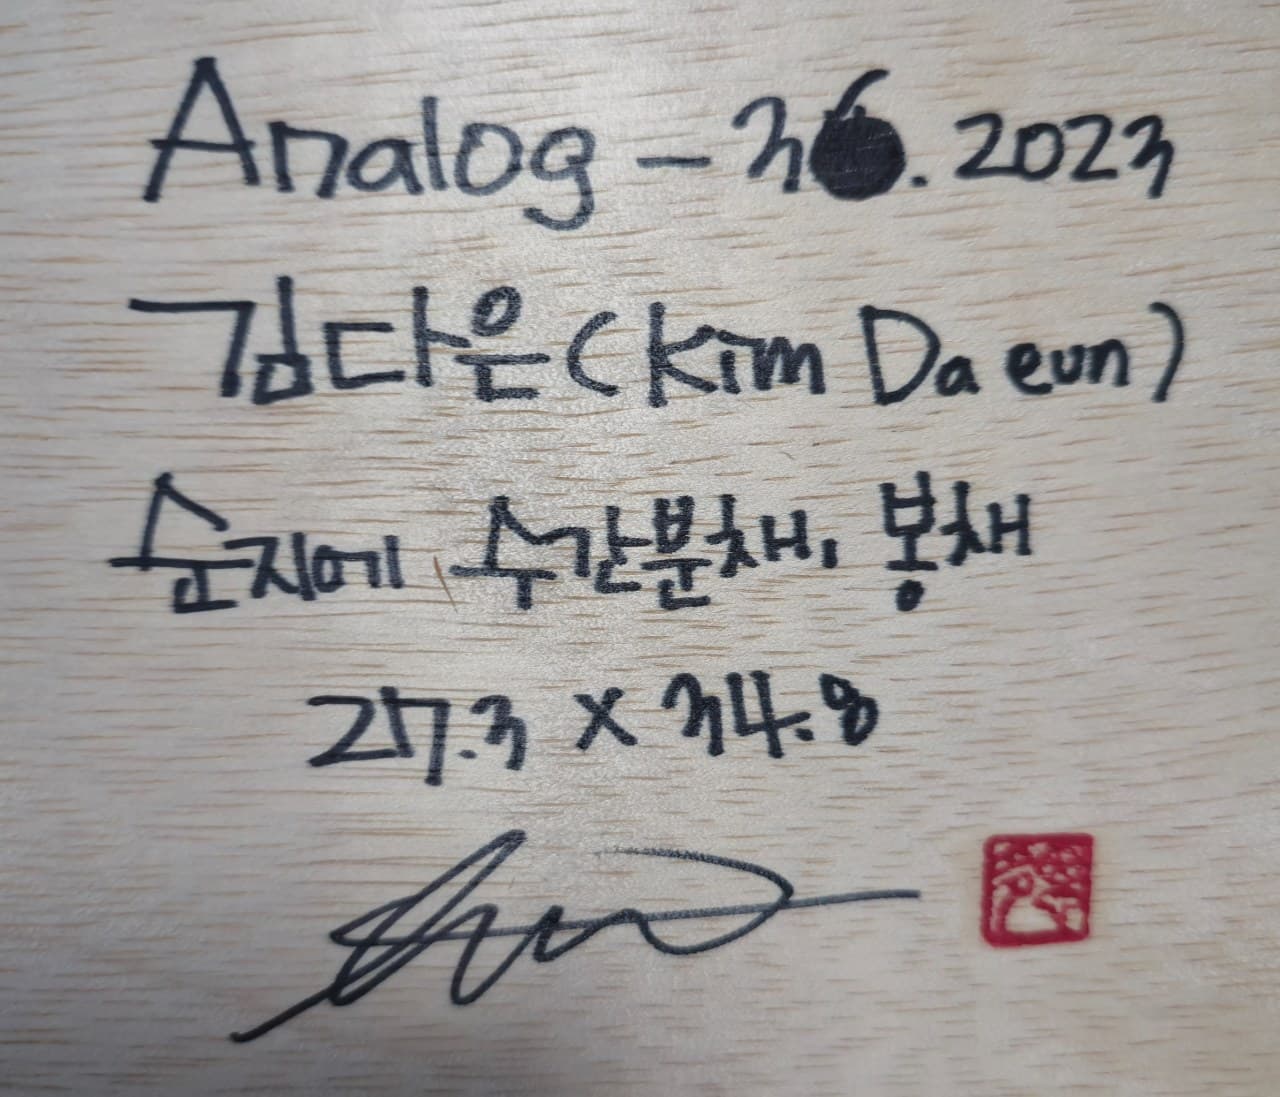 Analog - 36. 2023
김다은 (Kim Da eun)
순지에 수간분채, 봉채
27.3 × 34.8